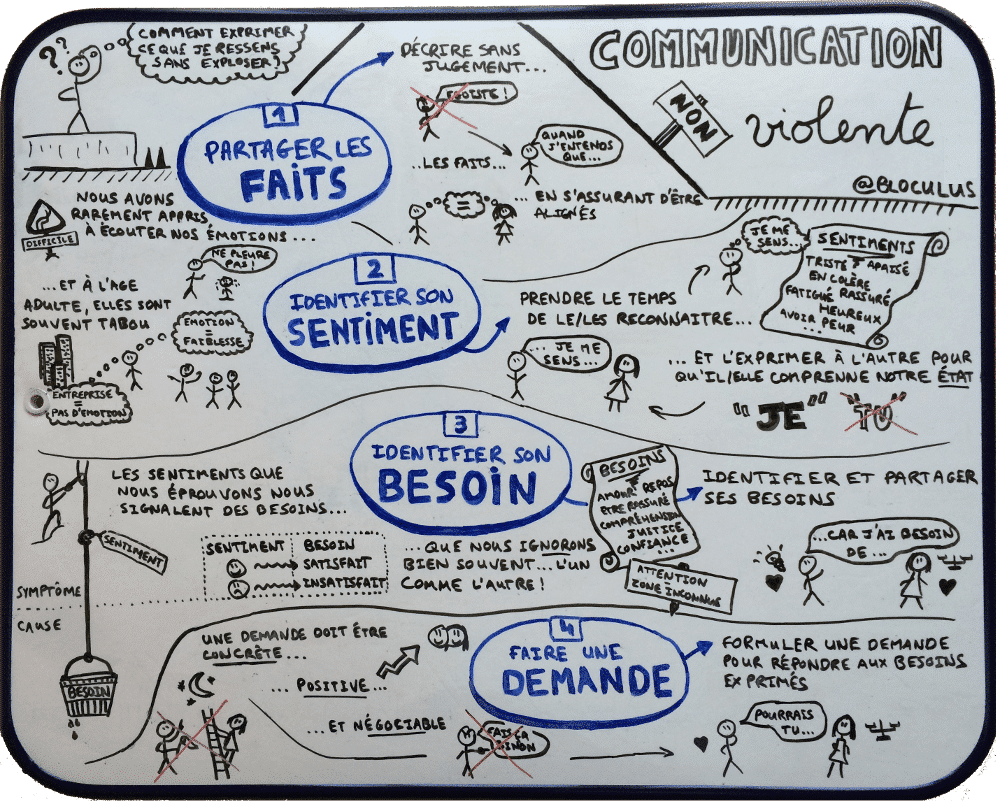 COMMUNICATION
NON
violente
@BLOCULUS
??
COMMENT EXPRIMER
CE QUE JE RESSENS
SANS EXPLOSER?
1
PARTAGER LES
FAITS
DÉCRIRE SANS
JUGEMENT...
EGOISTE !
..LES FAITS...
QUAND
J'ENTENDS
QUE...
=
... EN S'ASSURANT D'ÊTRE
ALIGNÉS
NOUS AVONS
RAREMENT APPRIS
À ÉCOUTER NOS ÉMOTIONS ...
DIFFICILE
NE PLEURE
PAS !
...ET À L'AGE
ADULTE, ELLES SONT
SOUVENT TABOU
EMOTION
=
FAIBLESSE
ENTREPRISE
=
PAS D'EMOTION
2
IDENTIFIER SON
SENTIMENT
PRENDRE LE TEMPS
DE LE/LES RECONNAITRE...
JE ME
SENS...
SENTIMENTS
TRISTE APAISÉ
EN COLÈRE
FATIGUÉ RASSURÉ
HEUREUX
AVOIR PEUR
...
... JE ME
SENS...
... ET L'EXPRIMER À L'AUTRE POUR
QU'IL/ELLE COMPRENNE NOTRE ÉTAT
"JE" "TU"
3
IDENTIFIER SON
BESOIN
LES SENTIMENTS QUE
NOUS ÉPROUVONS NOUS
SIGNALENT DES BESOINS...
SENTIMENT
SENTIMENT BESOIN
SATISFAIT
INSATISFAIT
...QUE NOUS IGNORONS
BIEN SOUVENT...L'UN
COMME L'AUTRE !
BESOINS
AMOUR REPOS
ETRE RASSURÉ
COMPRÉHENSION
JUSTICE
CONFIANCE
...
ATTENTION
ZONE INCONNUE
IDENTIFIER ET PARTAGER
SES BESOINS
...CAR J'AI BESOIN
DE ...
SYMPTÔME
CAUSE
BESOIN
4
FAIRE UNE
DEMANDE
UNE DEMANDE DOIT ÊTRE
CONCRÈTE...
... POSITIVE...
...ET NÉGOCIABLE
FAIS ÇA
SINON
FORMULER UNE DEMANDE
POUR RÉPONDRE AUX BESOINS
EXPRIMÉS
POURRAIS
TU...